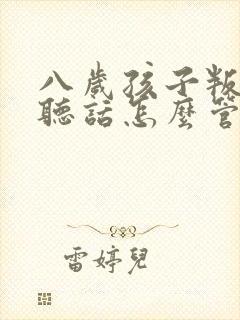 八歲孩子叛
聽話怎麼管
雷婷兒